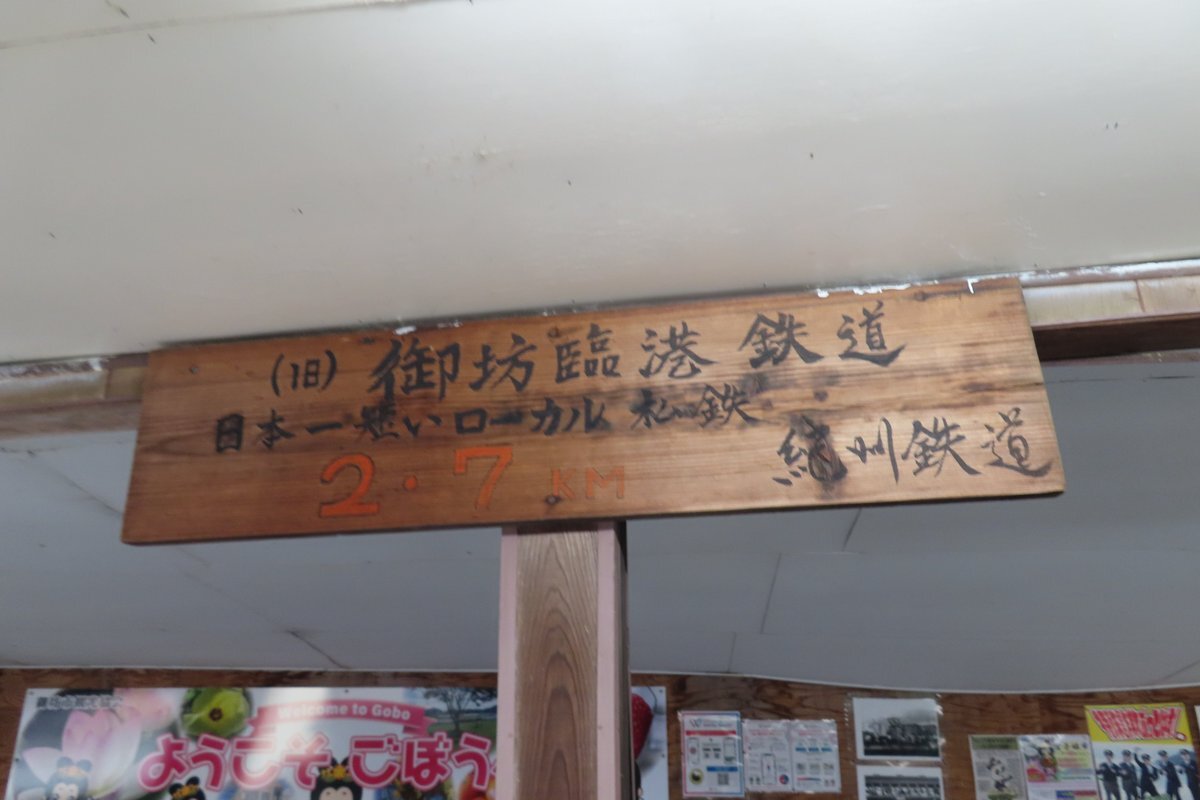 (旧) 御坊臨港鉄道
日本一短いローカル私鉄
2.7 KM
紀州鉄道
Welcome to Gobo
ようこそごぼう